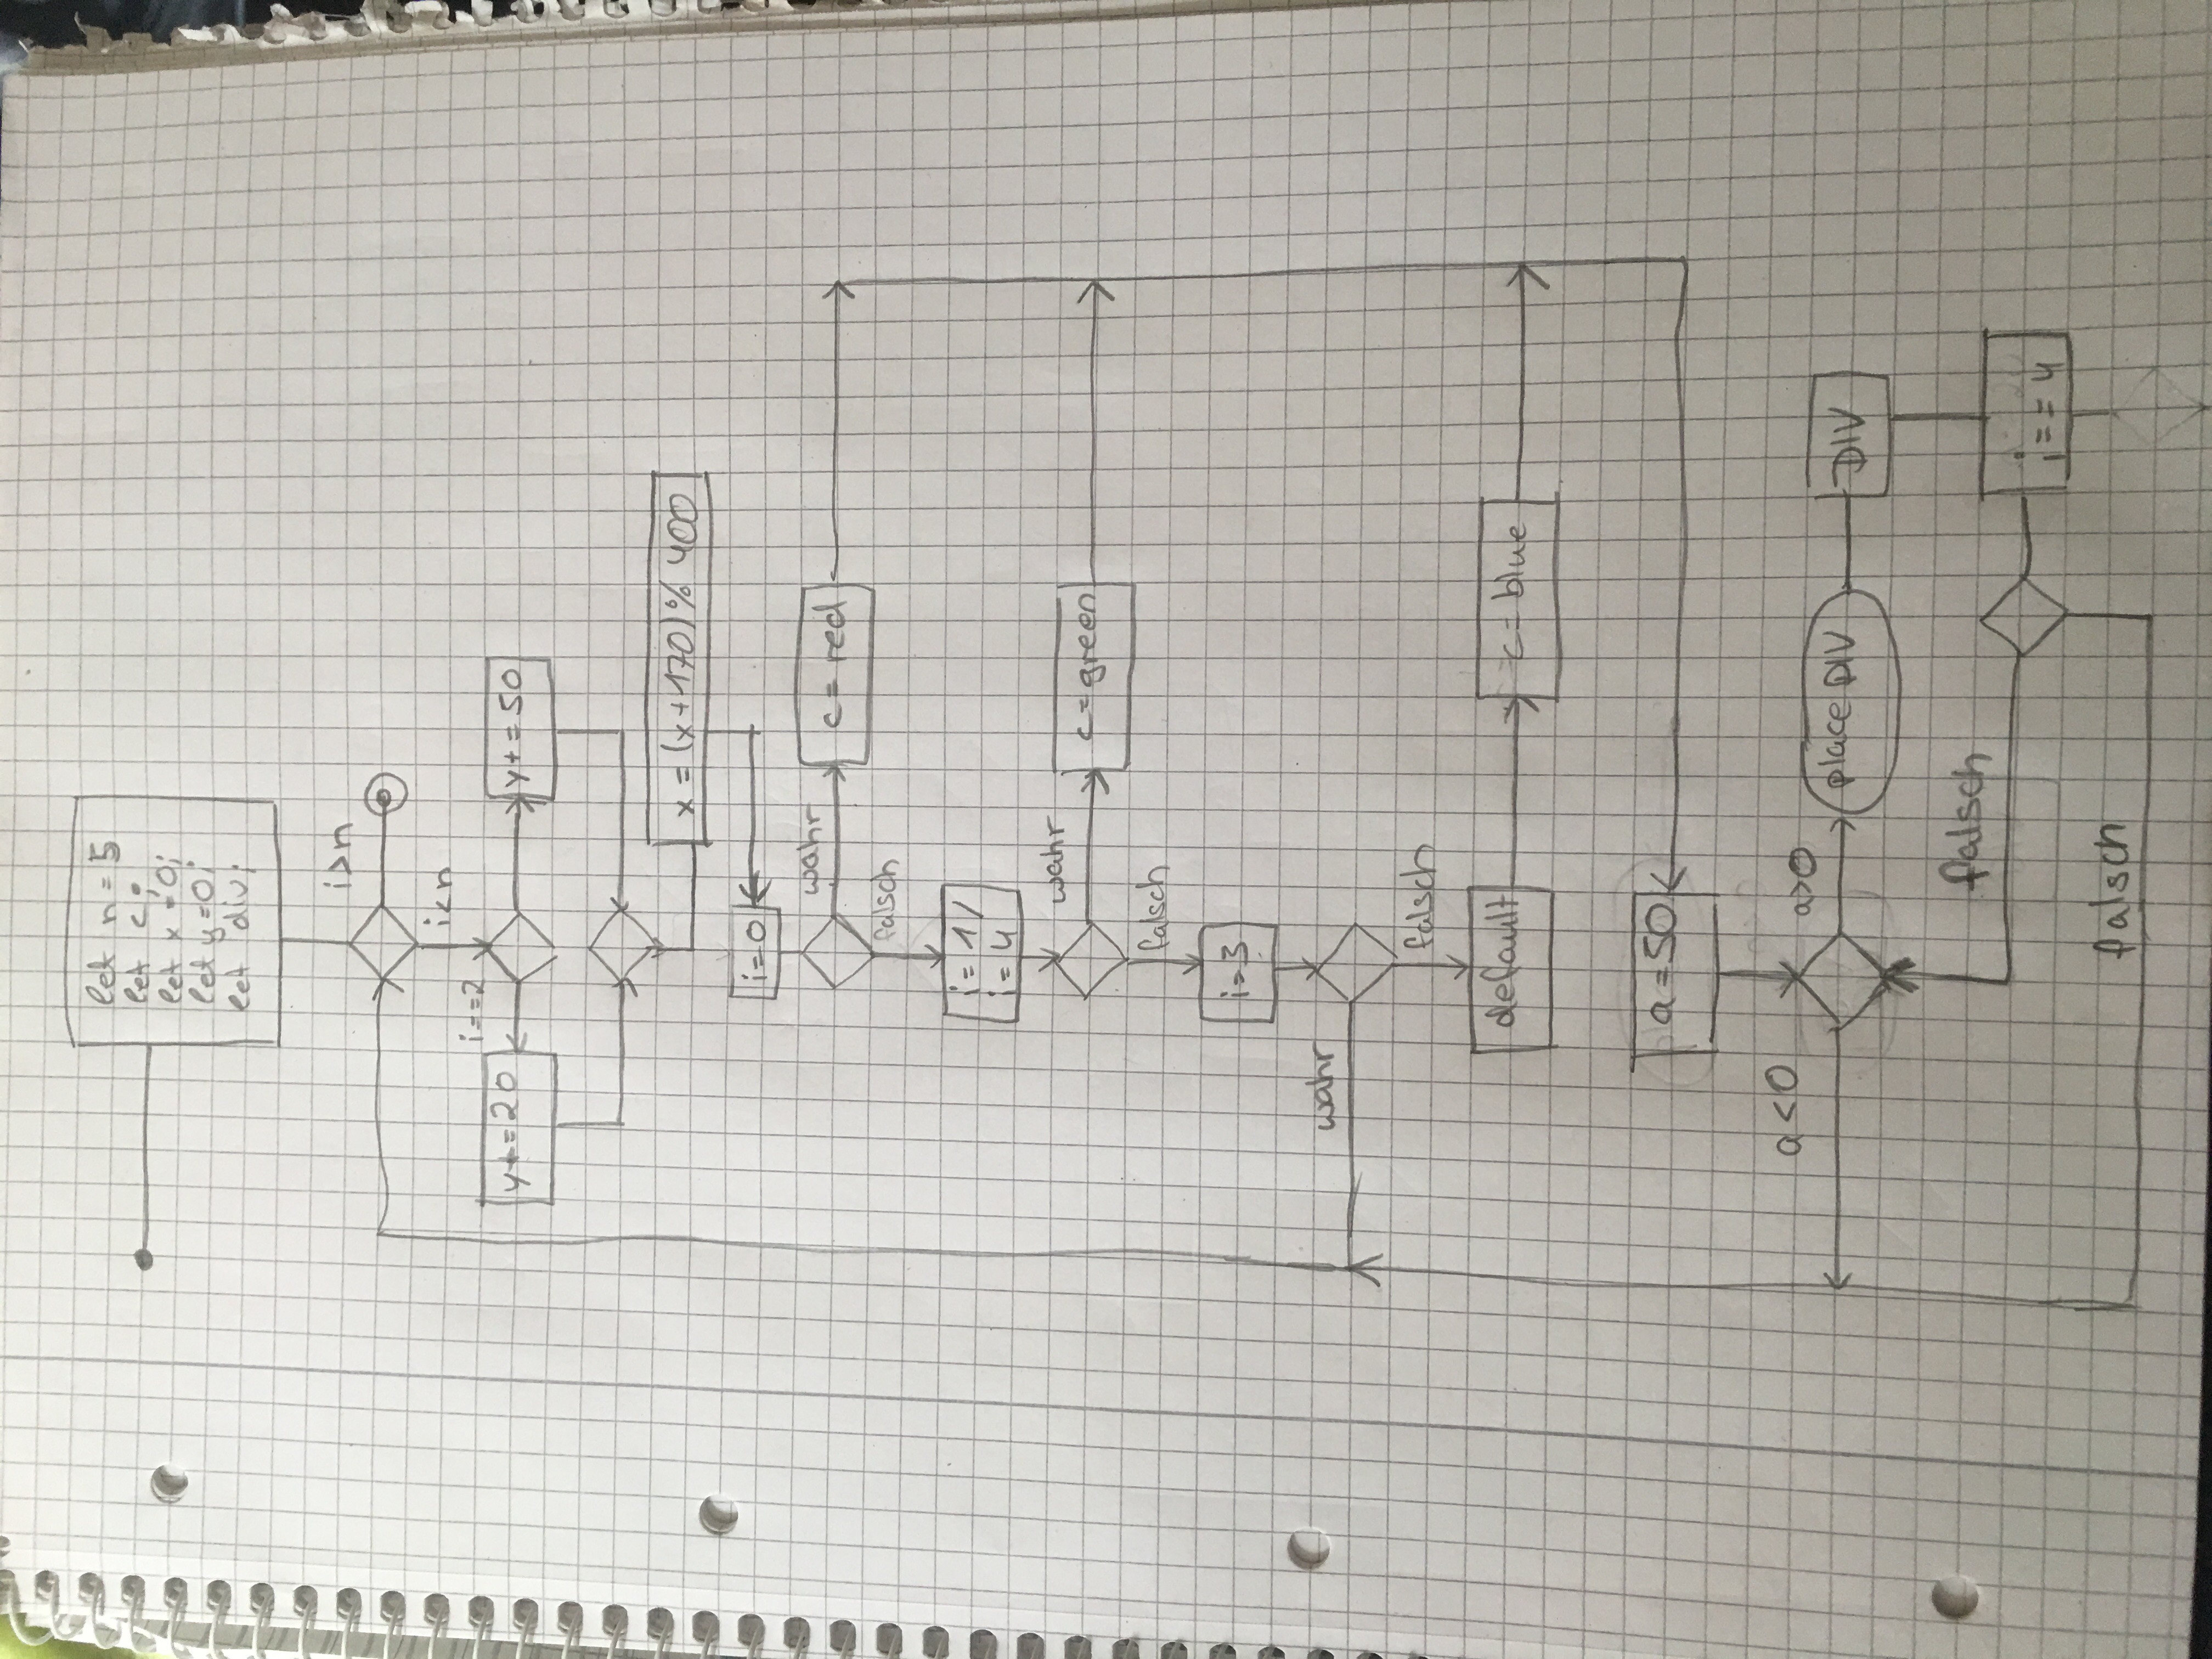 let n = 5
let c;
let x = 0;
let y = 0;
let div;
i>n
i<n
i==2
y+=20
y+=50
x = (x+170)% 400
i=0
wahr
c = red
falsch
i= 1/
i= 4
wahr
c=green
falsch
i=3
wahr
falsch
default
c= blue
a=50
a<0
a>0
place DIV
DIV
falsch
i== 4
falsch